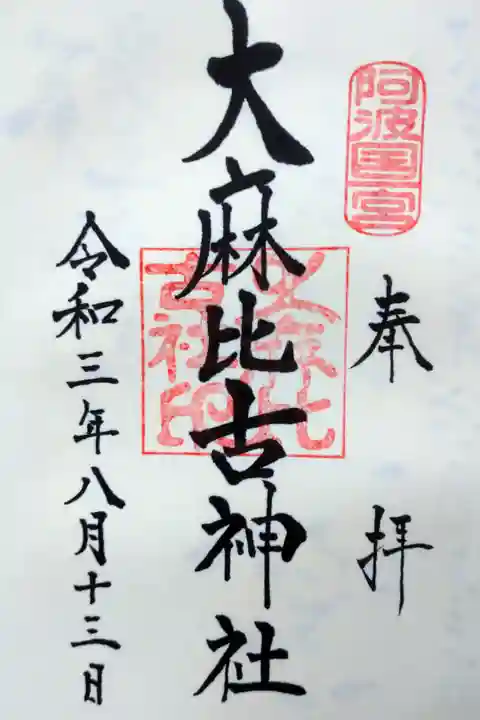 阿波国一宮
奉拝
大麻比古神社
大麻比古社印
令和三年八月十三日